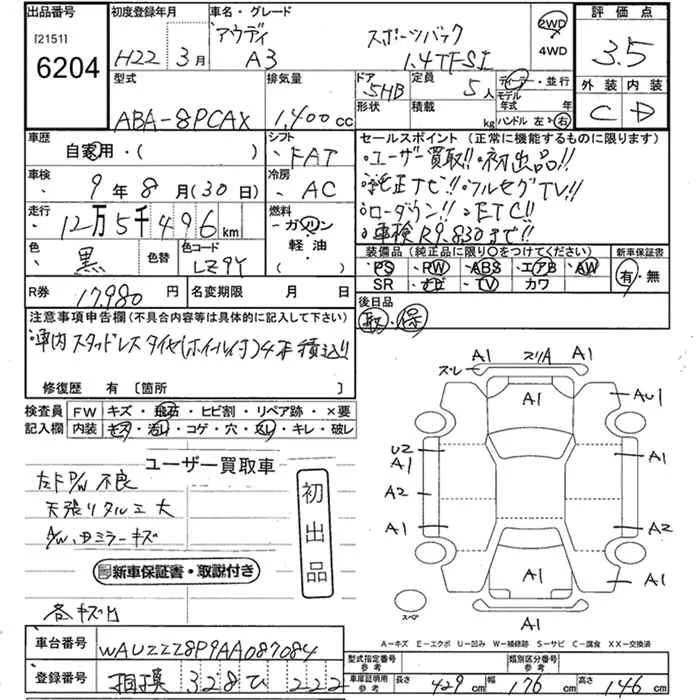 出品番号
[2151]
6204
初度登録年月
H22 3月
車名・グレード
アウディ スポーツバック
A3 1.4TFSI
2WD
4WD
評価点
3.5
外装 内装
C D
型式
ABA-8PCAX
排気量
1,400cc
ドア
5HB
形状
定員
5人
積載
kg
ディーラー・並行
モデル年式 年
ハンドル 左・右
車歴
自家用・( )
シフト
・FAT
車検
9年8月(30日)
冷房
・AC
走行
12万5千496km
燃料
・ガソリン
軽油
・( )
色
黒
色替
色コード
LZ9Y
R券
17,980円
名変期限 月 日
セールスポイント(正常に機能するものに限ります)
・ユーザー買取!!・初出品!!
・純正ナビ!!・フルセグTV!!
・ローダウン!!・ETC!!
・車検R9.8.30まで!!
装備品(純正品に限り○をつけてください)
・PS ・PW ・ABS ・エアB ・AW
SR ・ナビ ・TV カワ
新車保証書
有・無
後日品
取・保
注意事項申告欄(不具合内容等は具体的に記入して下さい)
・車内スタッドレスタイヤ(ホイル付)4本積込!!
修復歴 有〔箇所 〕
検査員記入欄
FW キズ・飛石・ヒビ割・リペア跡・×要
内装 キズ・汚レ・コゲ・穴・スレ・キレ・破レ
ユーザー買取車
左F P/W 不良
天張リタルミ大
A/W、ドミラーキズ
初出品
新車保証書・取説付き
各キズ凹
A1 スリA A1
スレ
A1
AU1
U2
A1
A1
A2
A1
A2
A1
A1
スペア
A-キズ E-エクボ U-凹み W-補修跡 S-サビ C-腐食 XX-交換済
車台番号
WAUZZZ8P9AA087084
登録番号
相模 328 ひ 222
型式指定番号
参考
類別区分番号
参考
車庫証明用
参考
長さ 429cm 幅 176cm 高さ 146cm